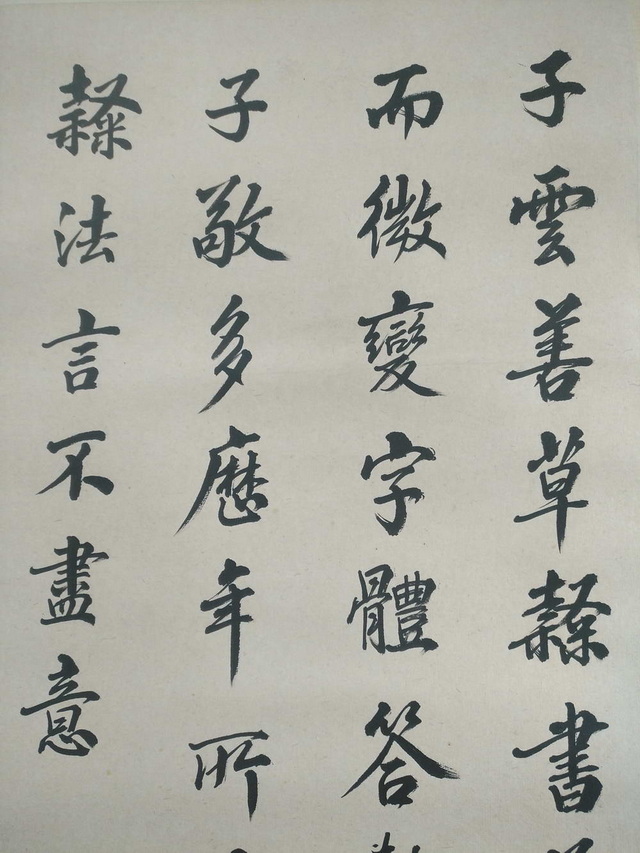 子雲善草隸書
而微變字體答
子敬多歷年所
隸法言不盡意